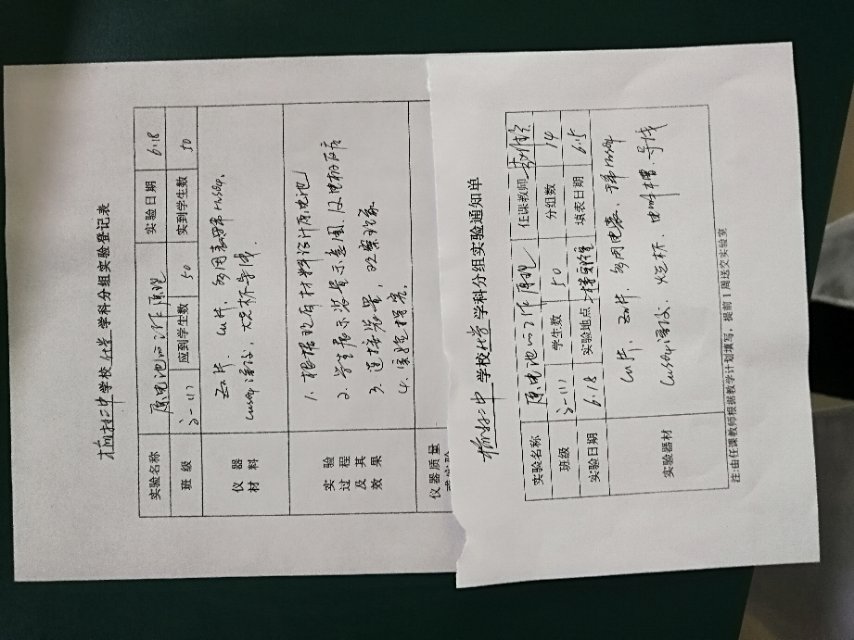 二中学校化学学科分组实验登记表
实验名称 原电池的工作原理 实验日期 6.18
班级 应到学生数 50 实到学生数 50
仪器材料 Zn片、Cu片、
CuSO4溶液、烧杯、导线.
实验过程及其效果 1. 根据现有材料设计原电池
2. 学生展示装置示意图及电极反应
3. 连接装置,观察现象
4. 实验探究.
仪器质量
二中学校化学学科分组实验通知单
实验名称 原电池的工作原理 任课教师
班级 学生数 50 分组数 14
实验日期 6.18 实验地点 填表日期 6.15
实验器材 Cu片、Zn片、
CuSO4溶液、烧杯、导线
注:由任课教师根据教学计划填写,提前1周送交实验室